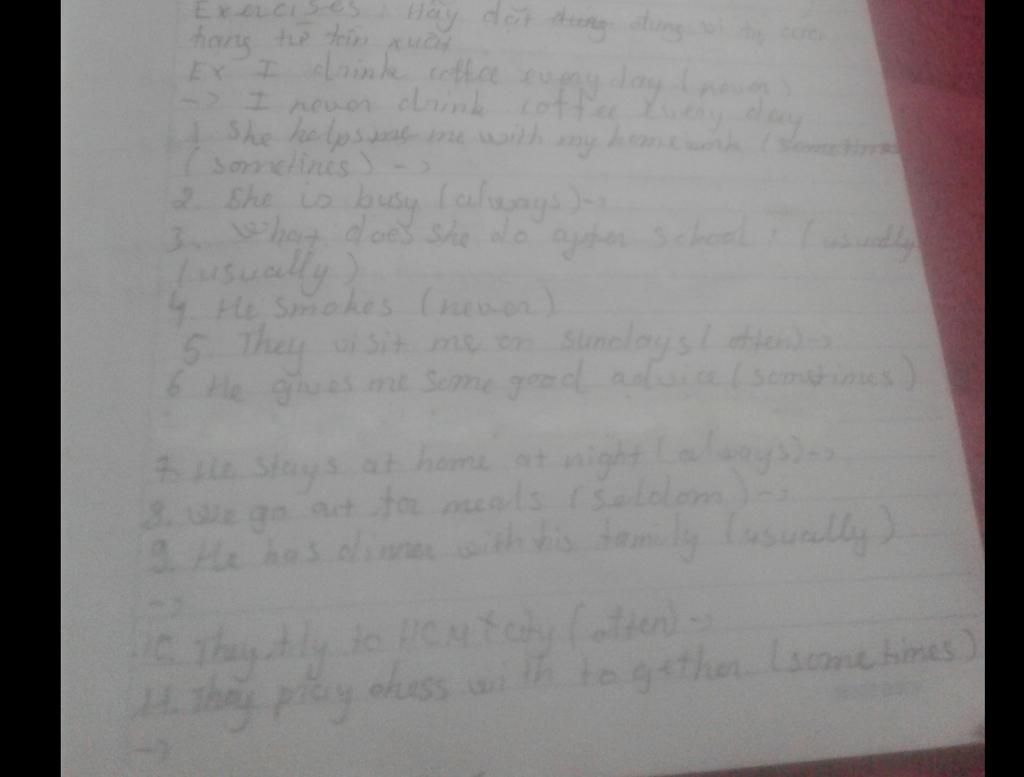 Exercises: Hãy đặt đúng đúng vị trị của
trạng từ tần xuất
Ex I drink coffee every day (never)
-> I never drink coffee every day
1. She helps me me with my homework (sometimes
(sometimes) ->
2. She is busy (always)->
3. What does she do after school? (usually
(usually)
4. He smokes (never)
5. They visit me on sundays (often)->
6 He gives me some good advice (sometimes)
7. He stays at home at night (always)->
8. We go out for meals (seldom) ->
9. He has dinner with his family (usually)
->
10. They fly to HCM city (often)->
11. They play chess with together (sometimes)
->